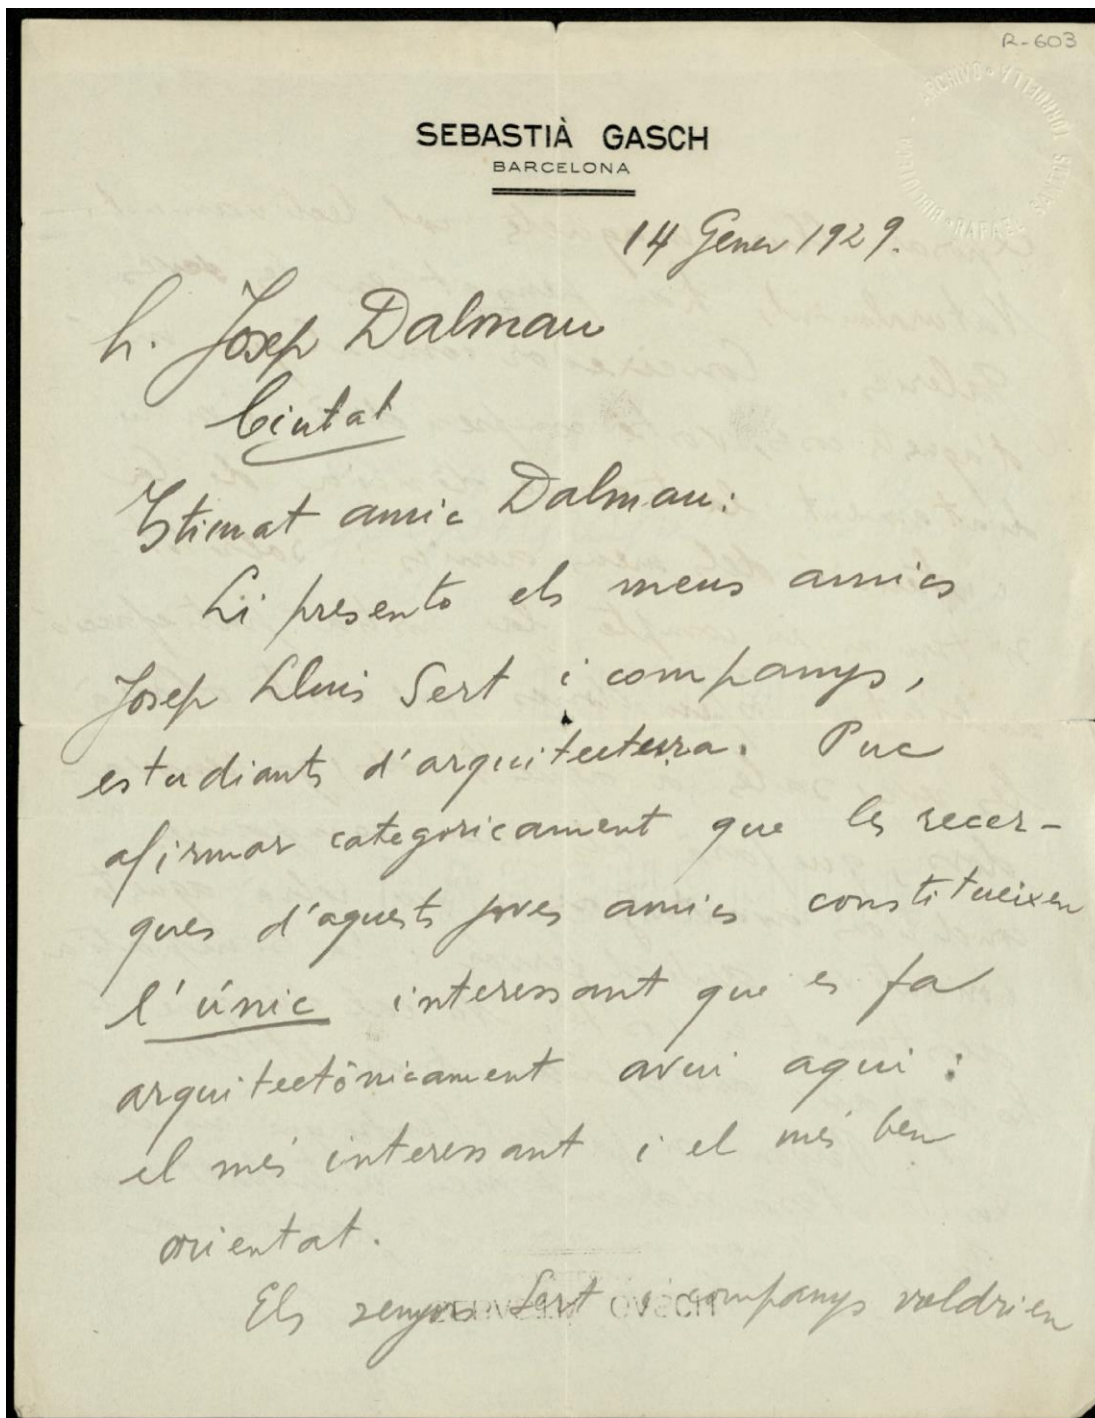 R-603
SEBASTIÀ GASCH
BARCELONA
14 Gener 1929.
Sr. Josep Dalmau
Ciutat
Estimat amic Dalmau:
Li presento els meus amics
Josep Lluis Sert i companys,
estudiants d'arquitectura. Puc
afirmar categoricament que les recer-
ques d'aquests joves amics constitueixen
l'únic interessant que es fa
arquitectònicament avui aqui:
el més interessant i el més ben
orientat.
Els senyors Sert i companys voldrien